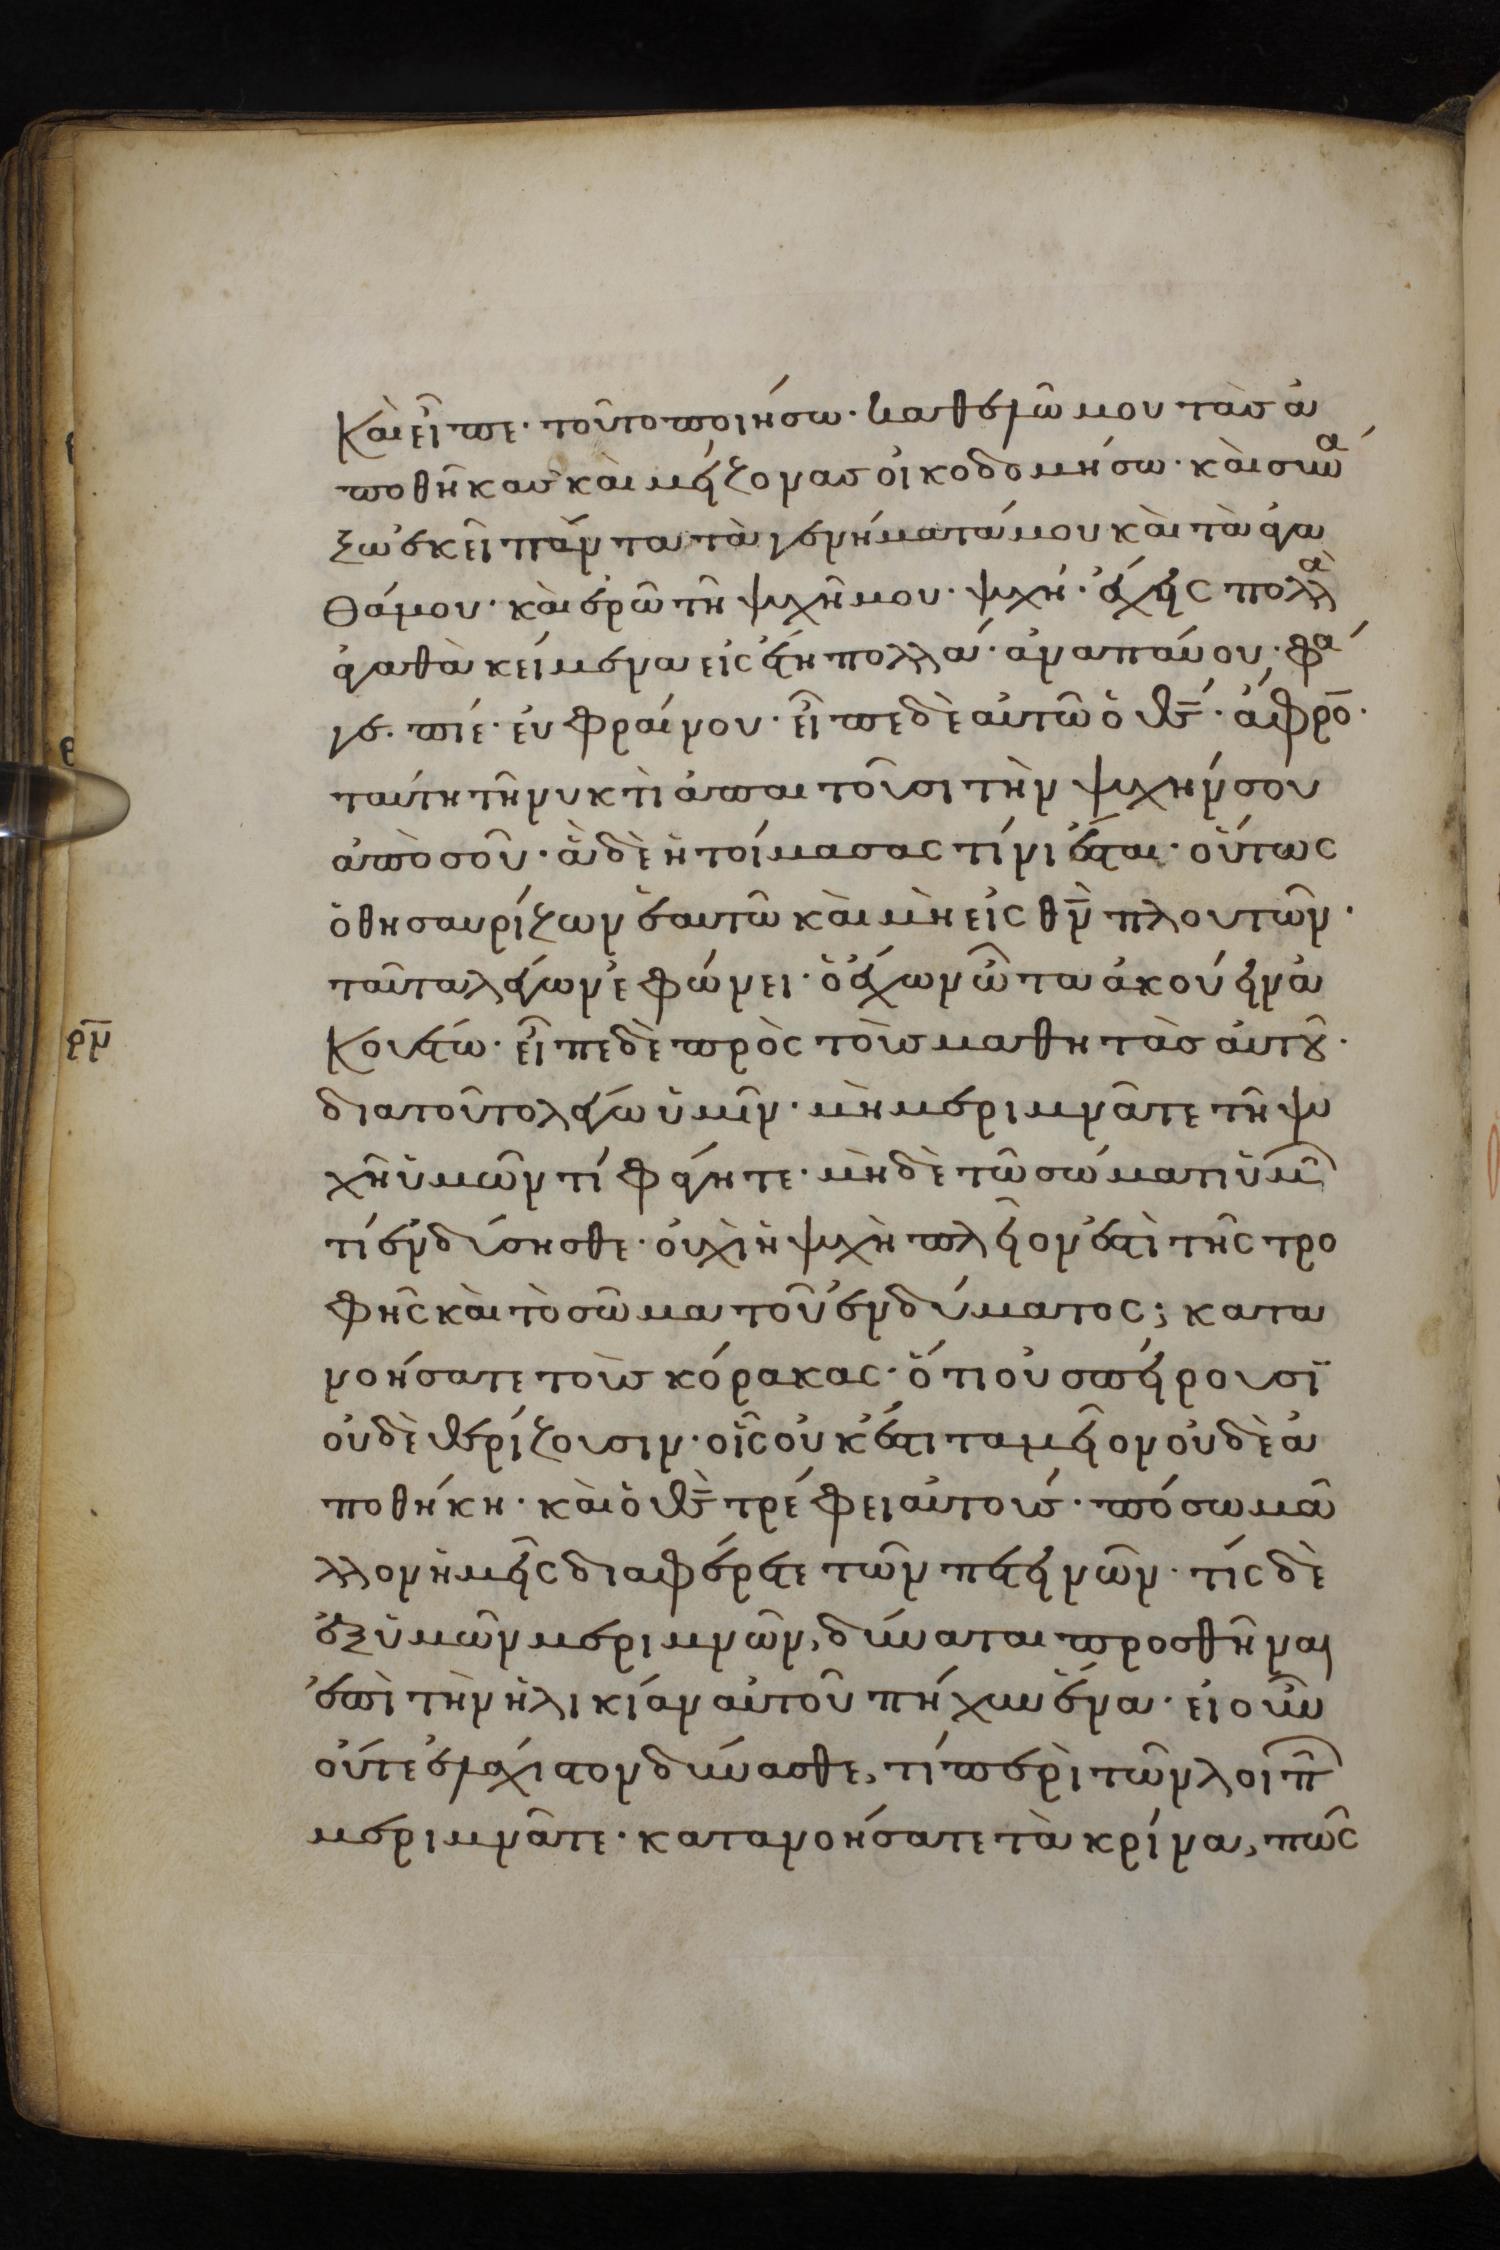 Καὶ εἶπε· τοῦτο ποιήσω· καθελῶ μου τὰς ἀ
ποθήκας καὶ μείζονας οἰκοδομήσω· καὶ συνά
ξω ἐκεῖ πάντα τὰ γενήματά μου καὶ τὰ ἀγα
θά μου· καὶ ἐρῶ τῆ ψυχῆ μου· ψυχή· ἔχεις πολλὰ
ἀγαθὰ κείμενα εἰς ἔτη πολλά· ἀναπαύου· φά
γε· πίε· εὐφραίνου· εἶπε δὲ αὐτῶ ὁ θς· ἄφρο·
ταύτη τῆ νυκτὶ ἀπαιτοῦσι τὴν ψυχήν σου
ἀπὸ σοῦ· ἃ δὲ ἡτοίμασας τίνι ἔσται· οὕτως
ὁ θησαυρίζων ἑαυτῶ καὶ μὴ εἰς θν πλουτῶν·
ταῦτα λέγων ἐφώνει· ὁ ἔχων ὦτα ἀκούειν ἀ
Κουέτω· εἶπε δὲ πρὸς τοὺς μαθητὰς αὐτοῦ·
ρν
διατοῦτο λέγω ὑμῖν· μὴ μεριμνᾶτε τῆ ψυ
χῆ ὑμῶν τί φάγητε· μὴδὲ τῶ σώματι ὑμῶ
τί ἐνδύσησθε· οὐχὶ ἡ ψυχὴ πλεῖον ἐστὶ τῆς τρο
φῆς καὶ τὸ σῶμα τοῦ ἐνδύματος; κατα
νοήσατε τοὺς κόρακας· ὅτι οὐ σπείρουσϊ
οὐδὲ θερίζουσιν· οἷς οὐκ ἔστι ταμεῖον οὐδὲ ἀ
ποθήκη· καὶ ὁ θς τρέφει αὐτούς· πόσω μᾶ
λλον ἡμεῖς διαφέρετε τῶν πετεινῶν· τίς δὲ
ἐξ ὑμῶν μεριμνῶν, δύναται προσθῆναι
ἐπὶ τὴν ἡλικίαν αὐτοῦ πήχυν ἕνα· εἰ οὖν
οὔτε ἐλάχιστον δύνασθε, τί περὶ τῶν λοιπῶ
μεριμνᾶτε· κατανοήσατε τὰ κρίνα, πῶς